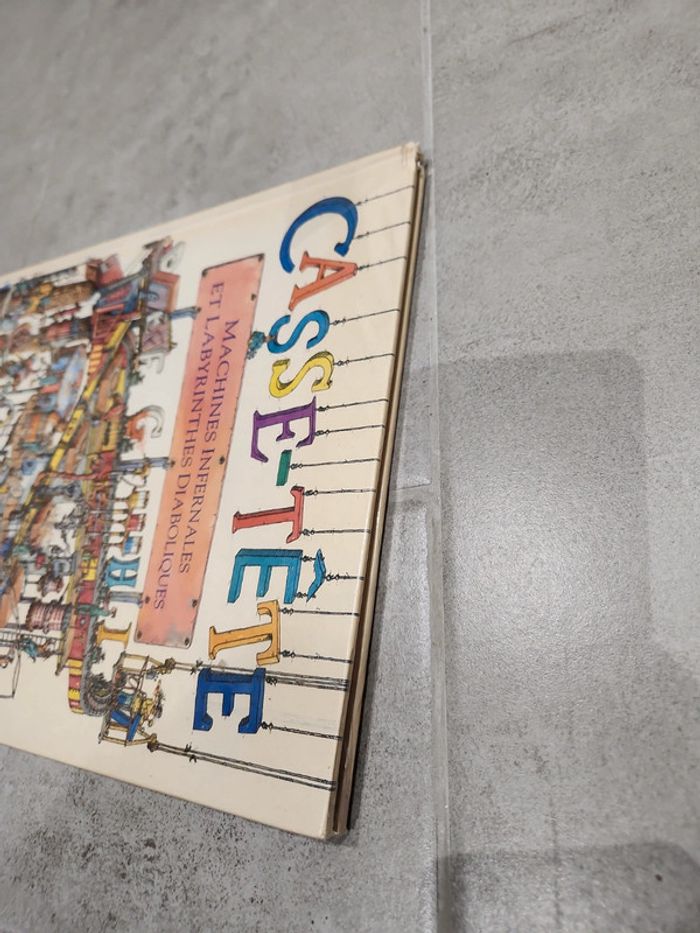 CASSE-TÊTE
MACHINES INFERNALES
ET LABYRINTHES DIABOLIQUES